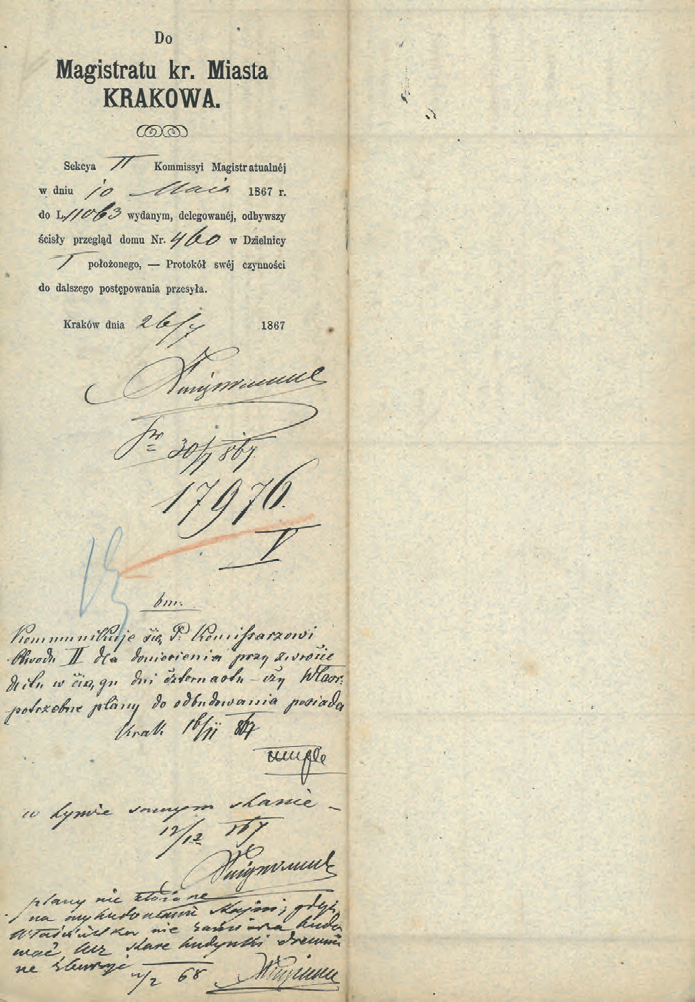 Do
Magistratu kr. Miasta
KRAKOWA.
Sekcya II Kommissyi Magistratualnéj
w dniu 10 Maia 1867 r.
do L. 11063 wydanym, delegowanéj, odbywszy
ścisły przegląd domu Nr. 460 w Dzielnicy
I położonego, — Protokół swéj czynności
do dalszego postępowania przesyła.
Kraków dnia 26/7 1867
30/7 867
17976.
V
bm.
Kommunikuje się P. Komissarzowi
Obwodu II dla doniesienia przy zwrocie
w ciągu dni czternastu czy Własc.
potrzebne plany do odbudowania posiada
Krak 16/11 867
w tymże samym stanie –
12/12 867
plany nie złożone
na wybudowanie gdyż
Właścicielka nie budo
wać lecz stare budynki drewnia
ne
2/2 68